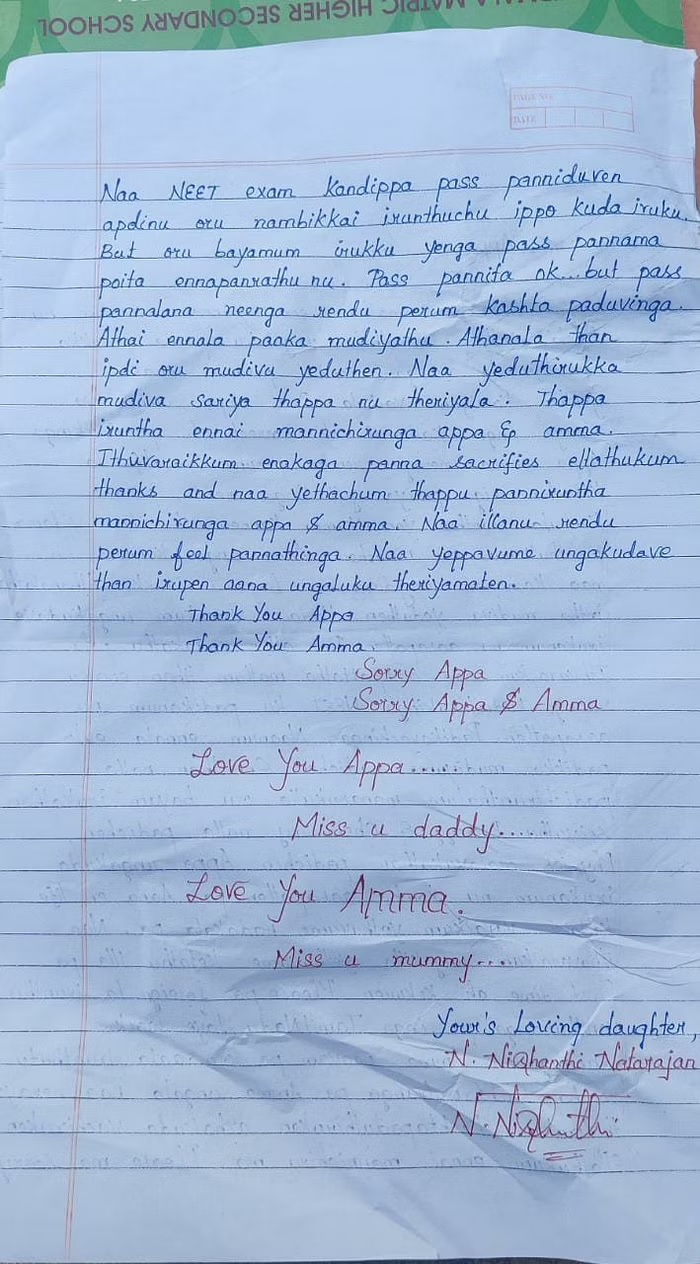 MATRIC HIGHER SECONDARY SCHOOL
PAGE NO
DATE
Naa NEET exam kandippa pass panniduven
apdinu oru nambikkai irunthuchu ippo kuda iruku.
But oru bayamum irukku yenga pass pannama
poita ennapanrathu nu. Pass pannita ok... but pass
pannalana neenga rendu perum kashta paduvinga.
Athai ennala paaka mudiyathu. Athanala than
ipdi oru mudivu yeduthen. Naa yeduthirukka
mudiva sariya thappa nu theriyala. Thappa
iruntha ennai mannichirunga appa & amma.
Ithuvaraikkum enakaga panna sacrifies ellathukum
thanks and naa yethachum thappu panniruntha
mannichirunga appa & amma. Naa illanu rendu
perum feel pannathinga. Naa yeppavume ungakudave
than irupen aana ungaluku theriyamaten.
Thank You Appa
Thank You Amma.
Sorry Appa
Sorry Appa & Amma
Love You Appa......
Miss u daddy....
Love You Amma.
Miss u mummy...
Your's Loving daughter,
N. Nishanthi Natarajan
N. Nishanthi